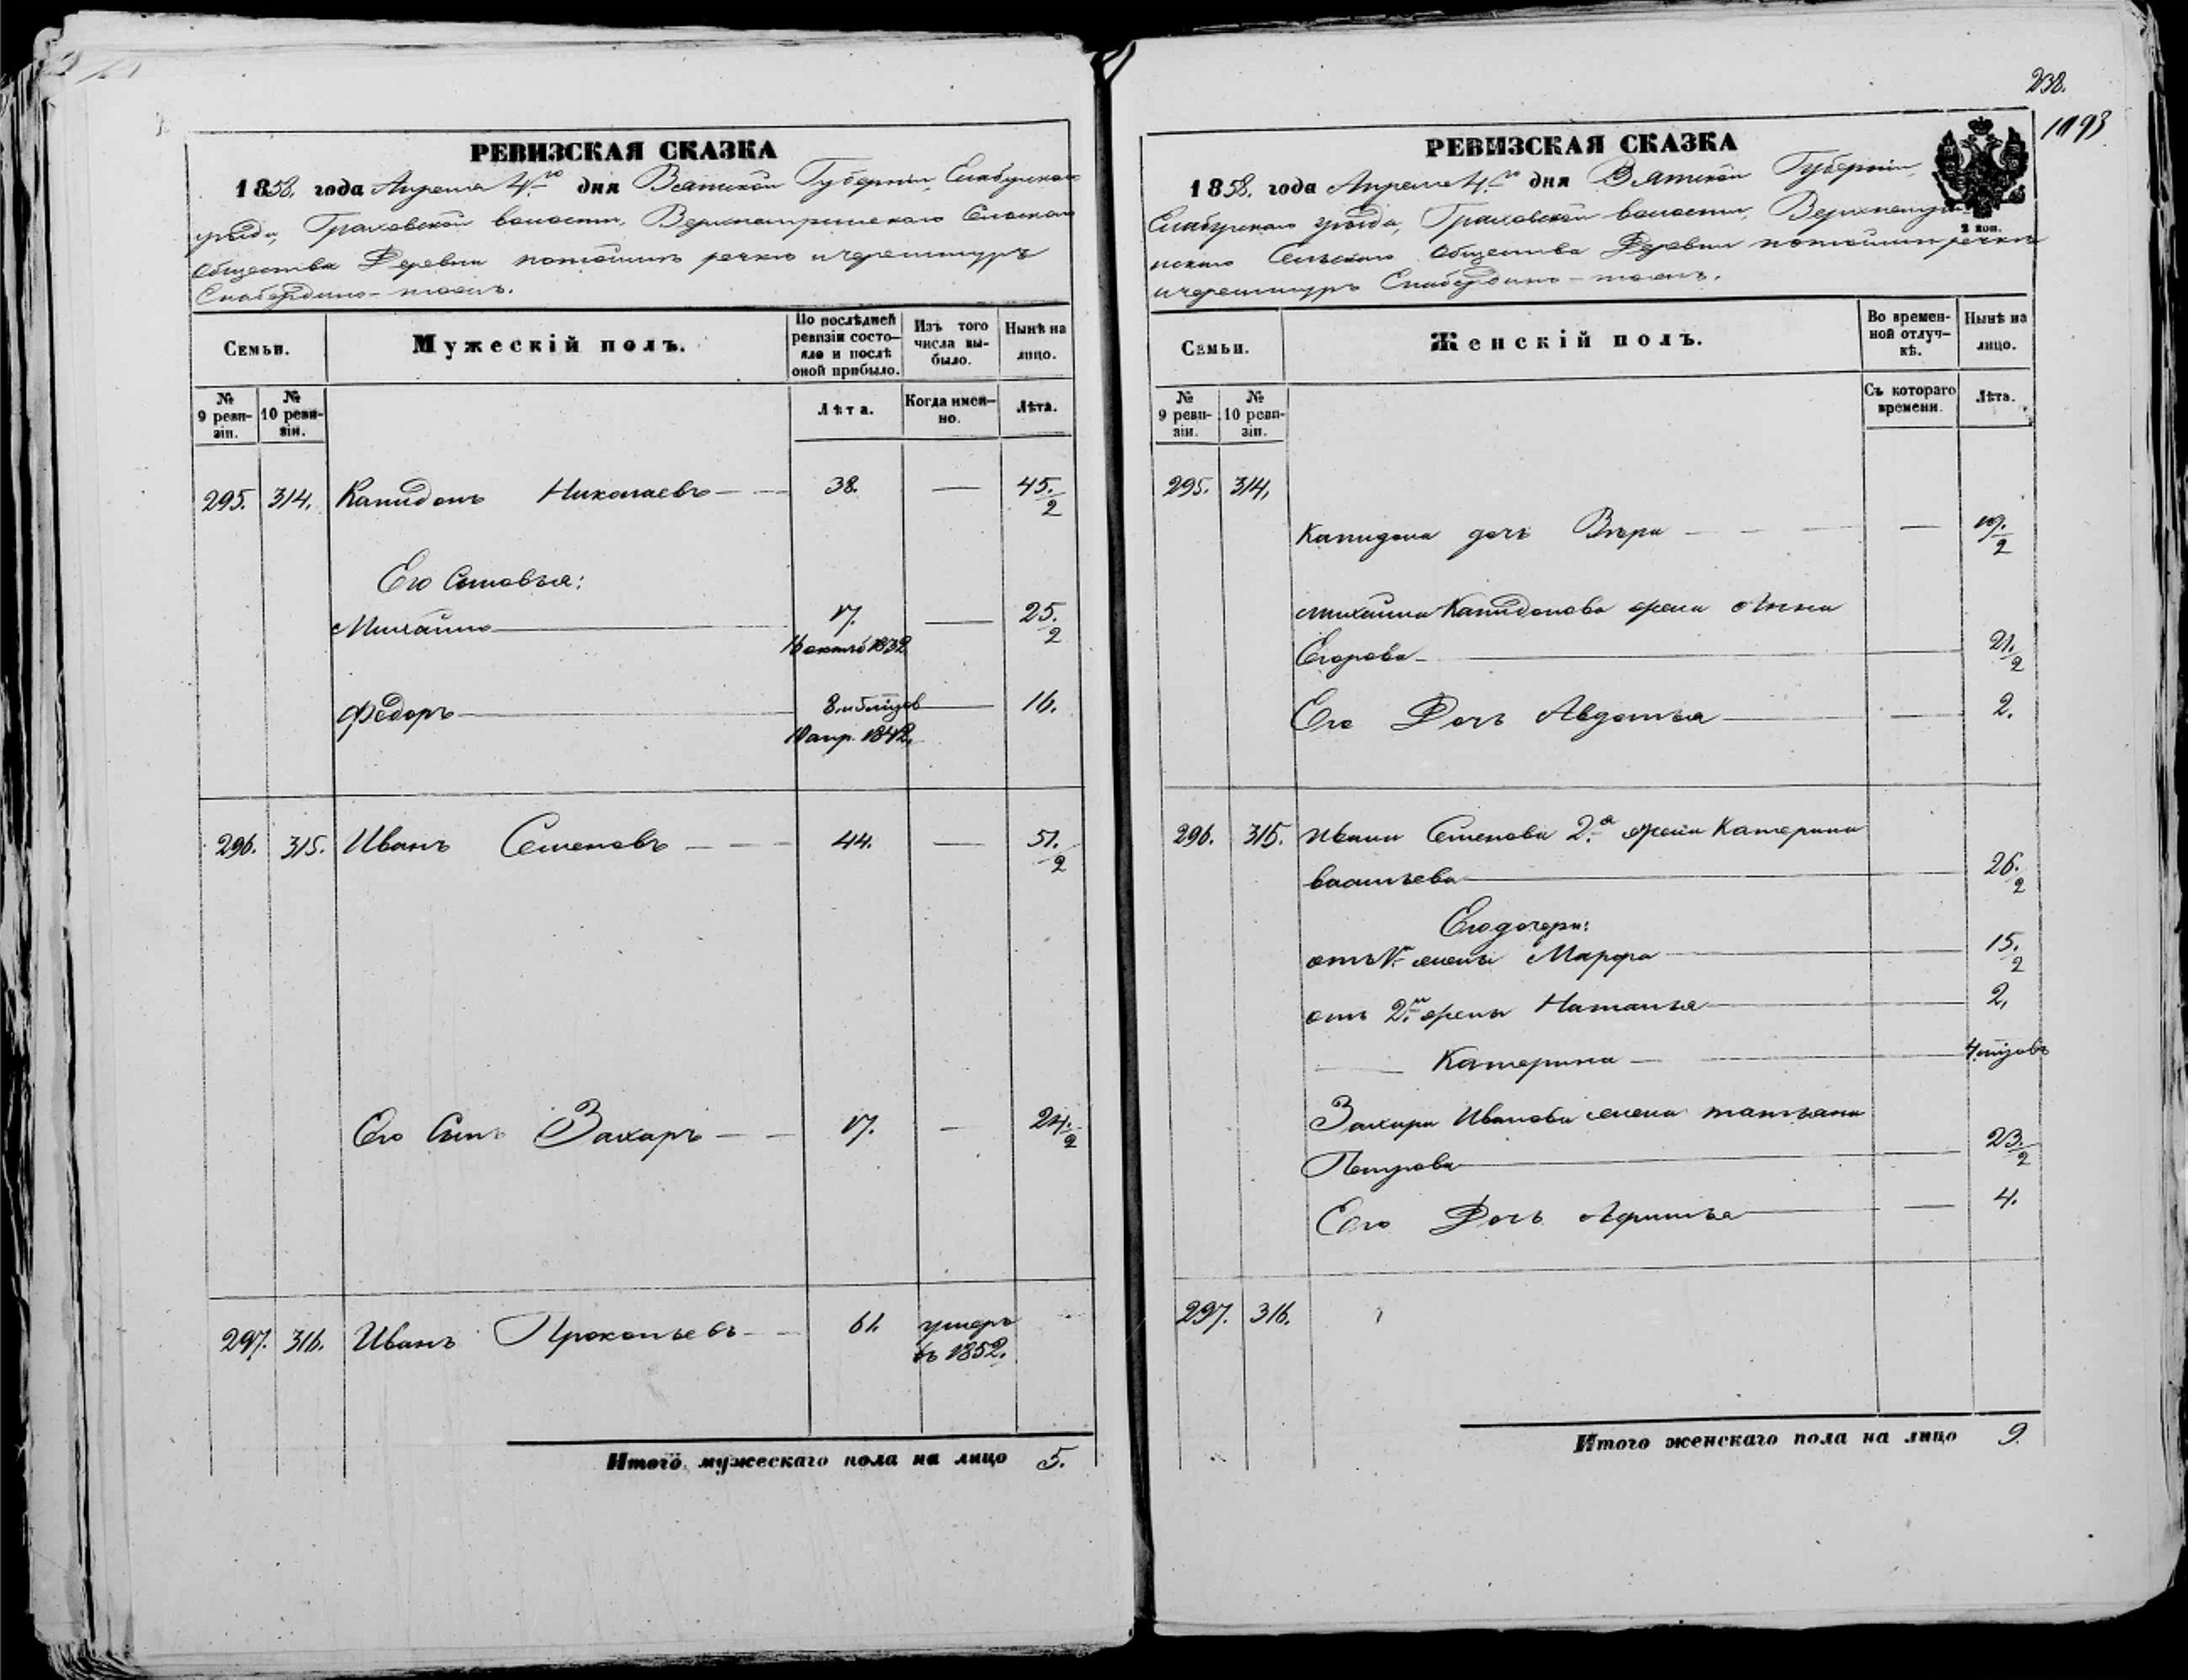 РЕВИЗСКАЯ СКАЗКА
1858. года Апреля 4.го дня Вятской Губернiи, Елабужскаго
уѣзда, Граховской волости, Сельскаго
Общества Деревни речкѣ
Семьи.
Мужескiй полъ.
По послѣдней ревизiи состояло и послѣ оной прибыло.
Изъ того числа выбыло.
Нынѣ на лицо.
№ 9 ревизiи.
№ 10 ревизiи.
Лѣта.
Когда именно.
Лѣта.
295. 314. Капидонъ Николаевъ — 38. — 45./2
Его Сыновья:
Михайло — 17. — 25./2
Федоръ — 16.
10 апр. 1842.
296. 315. Иванъ Семеновъ — 44. — 51./2
Его Сынъ Захаръ — 17. — 24./2
297. 316. Иванъ Прокопьевъ — 61. умеръ
въ 1852.
Итого мужескаго пола на лицо 5.
238.
1193
РЕВИЗСКАЯ СКАЗКА
1858. года Апреля 4.го дня Вятской Губернiи,
Елабужскаго уѣзда, Граховской волости,
Сельскаго Общества Деревни речкѣ
2 коп.
Семьи.
Женскiй полъ.
Во временной отлучкѣ.
Нынѣ на лицо.
№ 9 ревизiи.
№ 10 ревизiи.
Съ котораго времени.
Лѣта.
295. 314.
Капидона дочь Вѣра — — 19./2
Михайла Капидонова жена Анна
Егорова — 21./2
Его Дочь Авдотья — — 2.
296. 315. Ивана Семенова 2.я жена Катерина
Васильева — 26./2
Его дочери:
отъ 1. жены Марфа — 15./2
отъ 2.й жены Наталья — 2.
— Катерина — 4 мѣсяцовъ
Захара Иванова жена Татьяна
Петрова — 23./2
Его Дочь — — 4.
297. 316.
Итого женскаго пола на лицо 9.